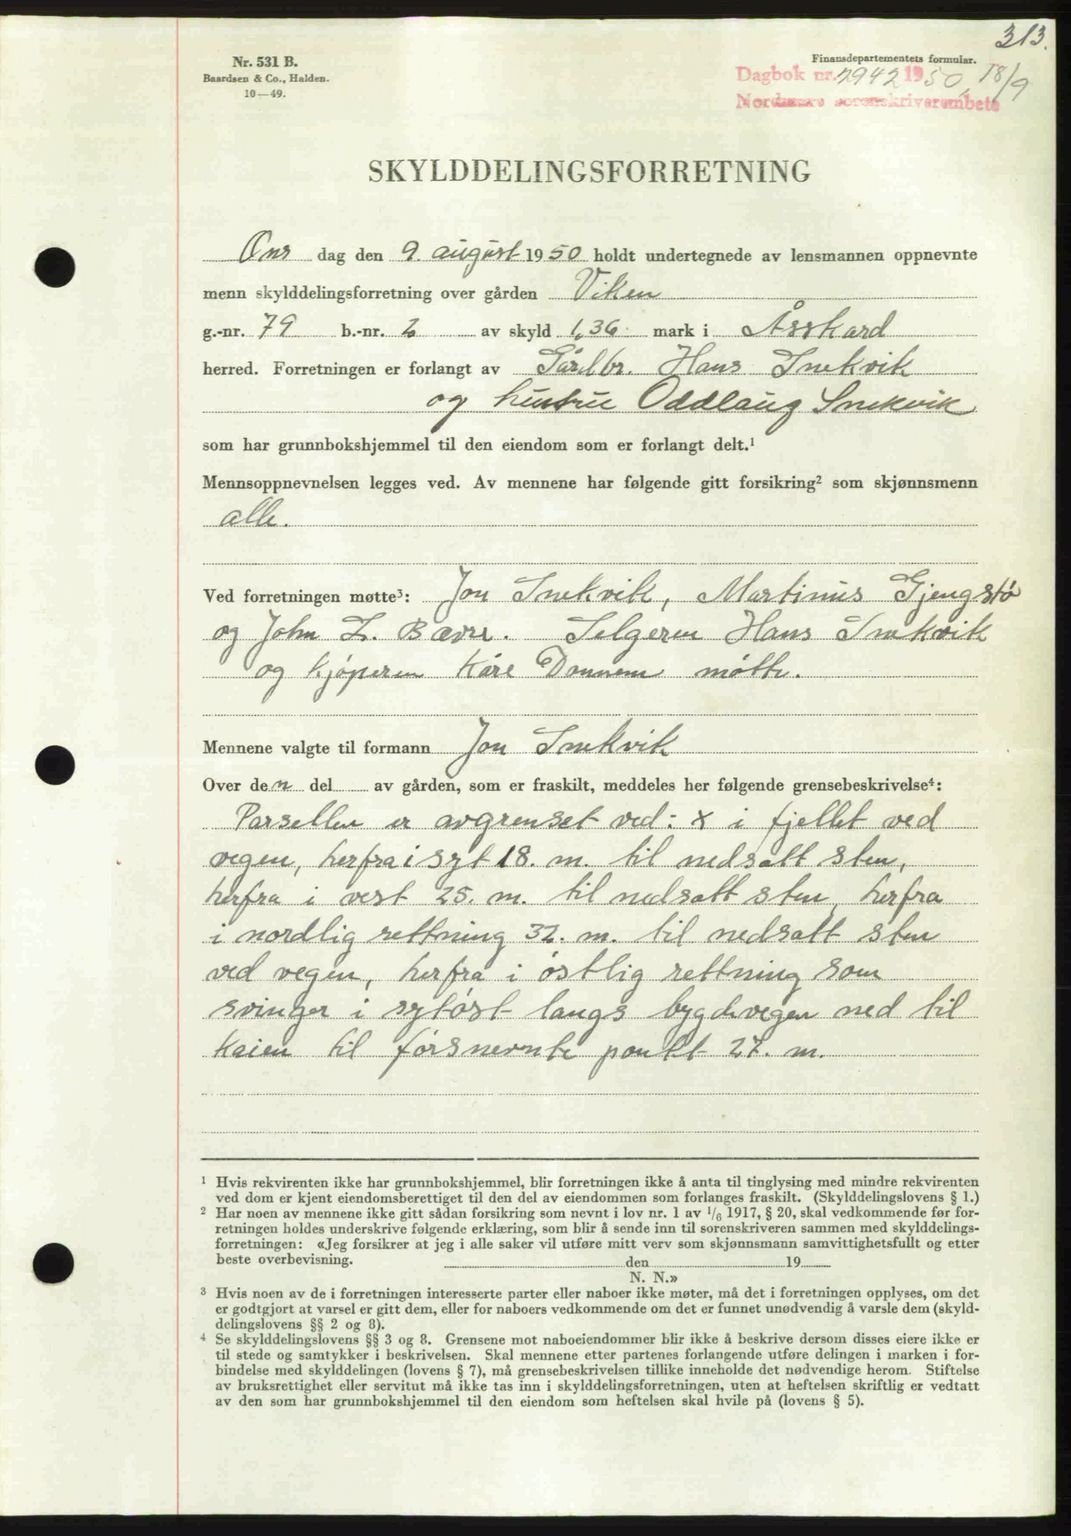 313.
Nr. 531 B.
Baardsen & Co., Halden.
10—49.
Finansdepartementets formular.
Dagbok nr. 2942 1950, 18/9
Nordmøre sorenskriverembete
SKYLDDELINGSFORRETNING
Ons dag den 9. august 1950 holdt undertegnede av lensmannen oppnevnte
menn skylddelingsforretning over gården Viken
g.-nr. 79 b.-nr. 2 av skyld 1,36 mark i Åsskard
herred. Forretningen er forlangt av Gårdbr. Hans Snekvik
og hustru Oddlaug Snekvik
som har grunnbokshjemmel til den eiendom som er forlangt delt.¹
Mennsoppnevnelsen legges ved. Av mennene har følgende gitt forsikring² som skjønnsmenn
alle.
Ved forretningen møtte³: Jon Snekvik, Martinus Gjengstø
og John L. Bæver. Selgeren Hans Snekvik
og kjøperen Kåre Donnem møtte.
Mennene valgte til formann Jon Snekvik
Over den del av gården, som er fraskilt, meddeles her følgende grensebeskrivelse⁴:
Parsellen er avgrenset ved: x i fjellet ved
vegen, herfra i syd 18. m. til nedsatt sten,
herfra i vest 25. m. til nedsatt sten, herfra
i nordlig rettning 32. m. til nedsatt sten
ved vegen, herfra i østlig rettning som
svinger i sydøst langs bygdevegen ned til
kaien til førsnevnte punkt 27. m.
¹ Hvis rekvirenten ikke har grunnbokshjemmel, blir forretningen ikke å anta til tinglysing med mindre rekvirenten
ved dom er kjent eiendomsberettiget til den del av eiendommen som forlanges fraskilt. (Skylddelingslovens § 1.)
² Har noen av mennene ikke gitt sådan forsikring som nevnt i lov nr. 1 av 1/6 1917, § 20, skal vedkommende før for-
retningen holdes underskrive følgende erklæring, som blir å sende inn til sorenskriveren sammen med skylddelings-
forretningen: «Jeg forsikrer at jeg i alle saker vil utføre mitt verv som skjønnsmann samvittighetsfullt og etter
beste overbevisning. den 19
N. N.»
³ Hvis noen av de i forretningen interesserte parter eller naboer ikke møter, må det i forretningen opplyses, om det
er godtgjort at varsel er gitt dem, eller for naboers vedkommende om det er funnet unødvendig å varsle dem (skyld-
delingslovens §§ 2 og 8).
⁴ Se skylddelingslovens §§ 3 og 8. Grensene mot naboeiendommer blir ikke å beskrive dersom disses eiere ikke er
til stede og samtykker i beskrivelsen. Skal mennene etter partenes forlangende utføre delingen i marken i for-
bindelse med skylddelingen (lovens § 7), må grensebeskrivelsen tillike inneholde det nødvendige herom. Stiftelse
av bruksrettighet eller servitut må ikke tas inn i skylddelingsforretningen, uten at heftelsen skriftlig er vedtatt
av den som har grunnbokshjemmel til den eiendom som heftelsen skal hvile på (lovens § 5).